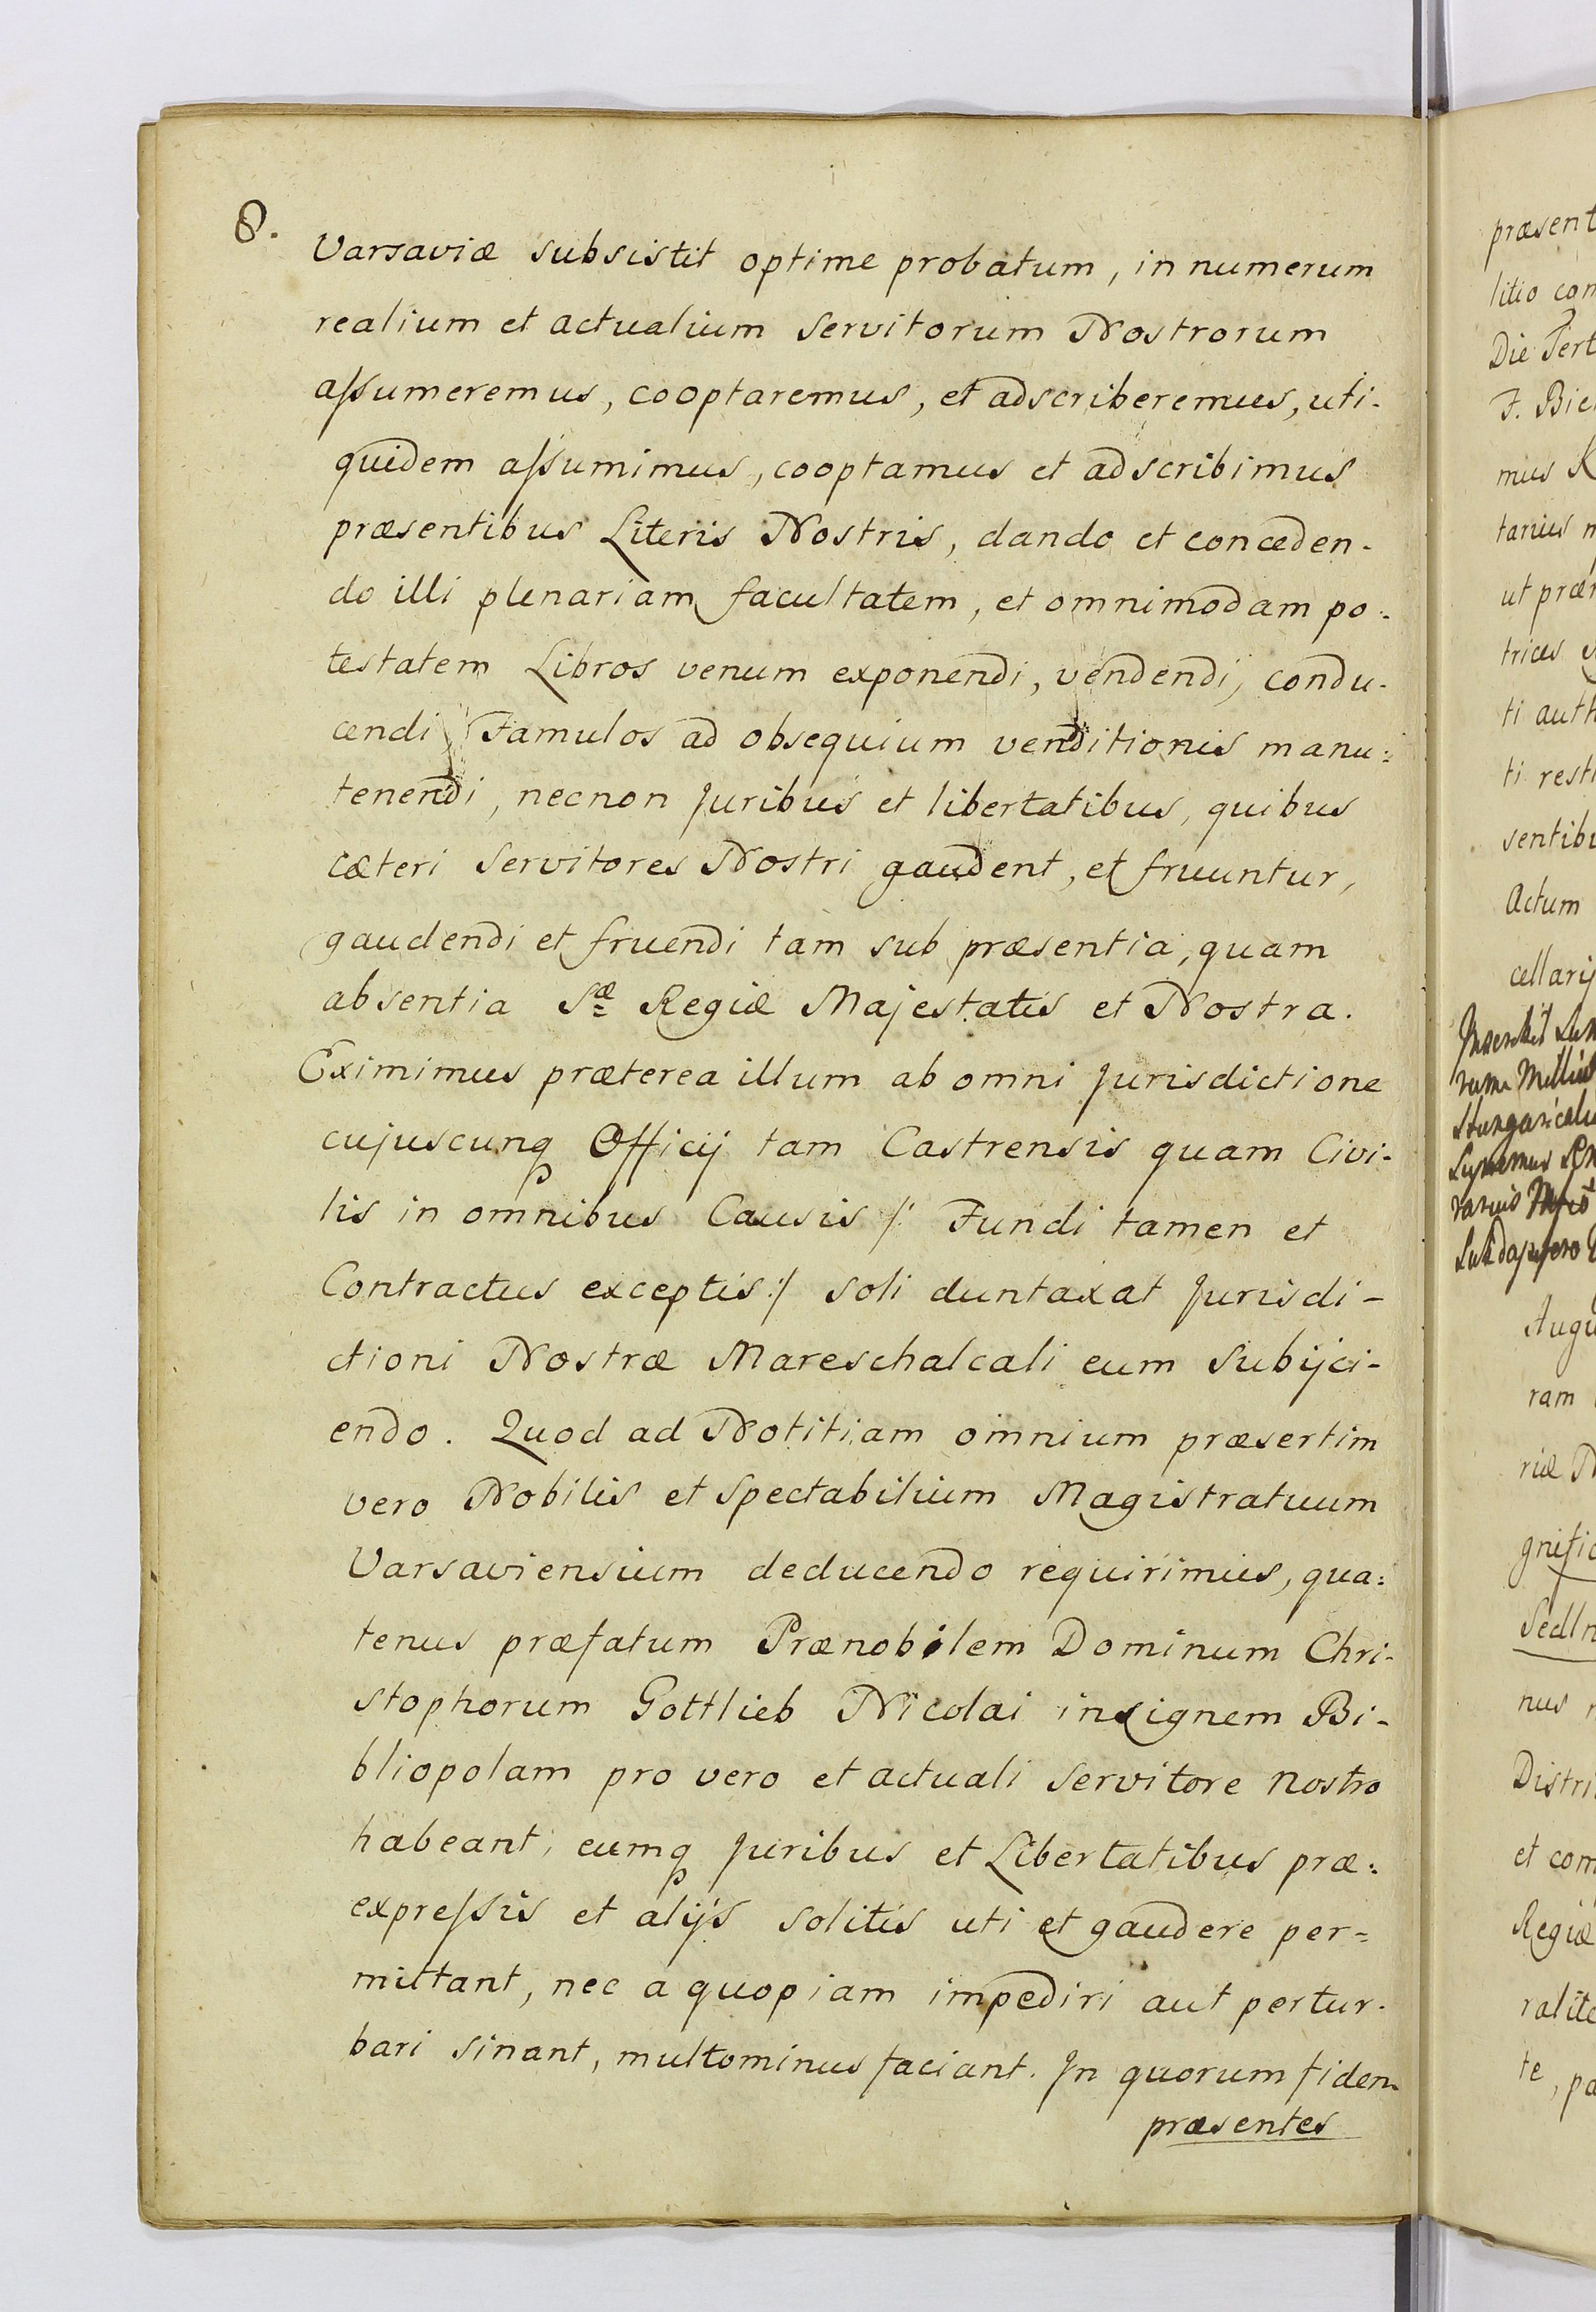 8.
Varsaviæ subsistit optime probatum, in numerum
realium et actualium Servitorum Nostrorum
aſsumeremus, cooptaremus, et adscriberemus, uti-
quidem aſsumimus, cooptamus et adscribimus
præsentibus Literis Nostris, dando et conceden-
do illi plenariam facultatem, et omnimodam po-
testatem Libros venum exponendi, vendendi, condu-
cendi, Famulos ad obsequium venditionis manu-
tenendi, necnon Juribus et libertatibus, quibus
cæteri Servitores Nostri gaudent, et fruuntur,
gaudendi et fruendi tam sub præsentia, quam
absentia Sæ Regiæ Majestatis et Nostra.
Eximimus præterea illum ab omni Jurisdictione
cujuscunq Officij tam Castrensis quam Civi-
lis in omnibus Causis /: Fundi tamen et
Contractus exceptis :/ soli duntaxat Jurisdi-
ctioni Nostræ Mareschalcali eum Subijci-
endo. Quod ad Notitiam omnium præsertim
vero Nobilis et Spectabilium Magistratuum
Varsaviensium deducendo requirimus, qua=
tenus præfatum Prænobilem Dominum Chri-
stophorum Gottlieb Nicolai insignem Bi-
bliopolam pro vero et actuali Servitore nostro
habeant, eumq Juribus et Libertatibus præ=
expreſsis et alijs solitis uti et gaudere per=
mittant, nec a quopiam impediri aut pertur-
bari sinant, multominus faciant. In quorum fidem
præsentes
præsent
litio con
Die Tert
F. Bie
mus K
tarius
ut præ
trices
ti auth
ti resti
sentibu
Actum
cellarij
Augu
ram
riæ
gnific
Sedln
nus
Distri
et com
Regiæ
ralite
te, pa